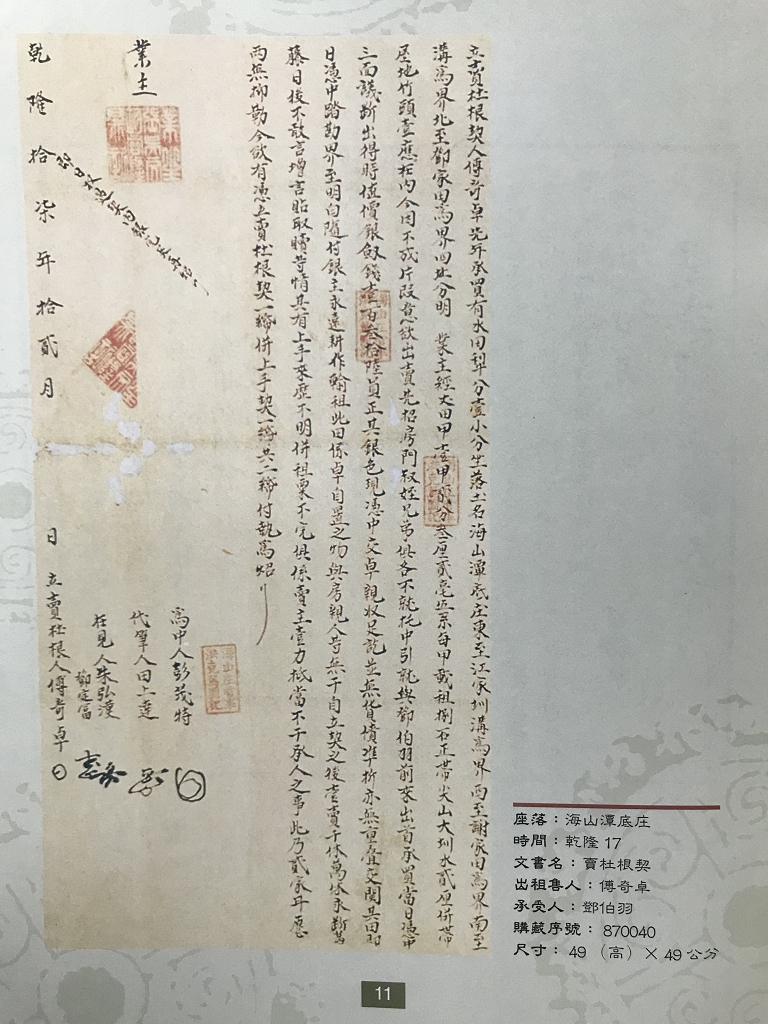 立賣杜根契人傅奇卓先年承買有水田犁分壹小分坐落土名海山潭底庄東至江家圳溝為界西至謝家田為界南至
溝為界北至鄧家田為界四址分明 業主經丈田甲壹甲貳分叁厘貳毫伍系每甲載租捌石正帶尖山大圳水貳厘併帶
屋地竹頭壹應在內今因不成片段意欲出賣先招房門叔姪兄弟俱各不就托中引就與鄧伯羽前來出首承買當日憑中
三面議斷出得時值價銀劍錢壹百叁拾陸員正其銀色現憑中交卓親收足訖並無貨債準折亦無重叠交關其田即
日憑中踏勘界至明白隨付銀主永遠耕作輸租此田係卓自置之物與房親人等無干自立契之後壹賣千休萬休永斷葛
藤日後不敢言增言貼取贖等情其有上手來歷不明併租粟不完俱係賣主壹力抵當不干承人之事此乃貳家甘愿
兩無抑勒今欲有憑立賣杜根契一紙併上手契一紙共二紙付執為炤
為中人彭茂特
代筆人田上達
在見人朱弘漢
鄧定富
業主
即日收過契內銀完足再炤
乾隆拾柒年拾貳月 日立賣杜根人傅奇卓
座落：海山潭底庄
時間：乾隆17
文書名：賣杜根契
出租售人：傅奇卓
承受人：鄧伯羽
購藏序號：870040
尺寸：49（高）×49公分
11